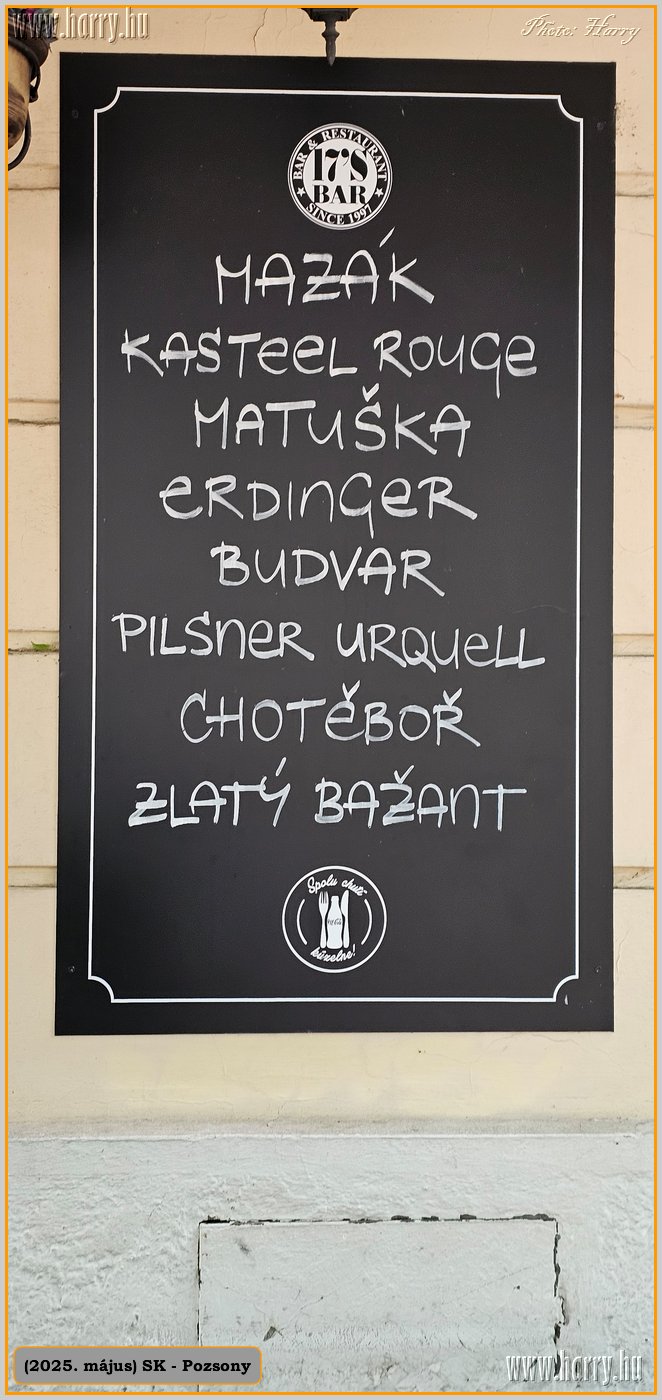 www.harry.hu
Photo: Harry
BAR & RESTAURANT
17'S
BAR
SINCE 1997
MAZÁK
KASTEEL ROUGE
MATUŠKA
ERDINGER
BUDVAR
PILSNER URQUELL
CHOTĚBOŘ
ZLATÝ BAŽANT
Spolu chutí
Coca-Cola
kúzelne!
(2025. május) SK - Pozsony
www.harry.hu